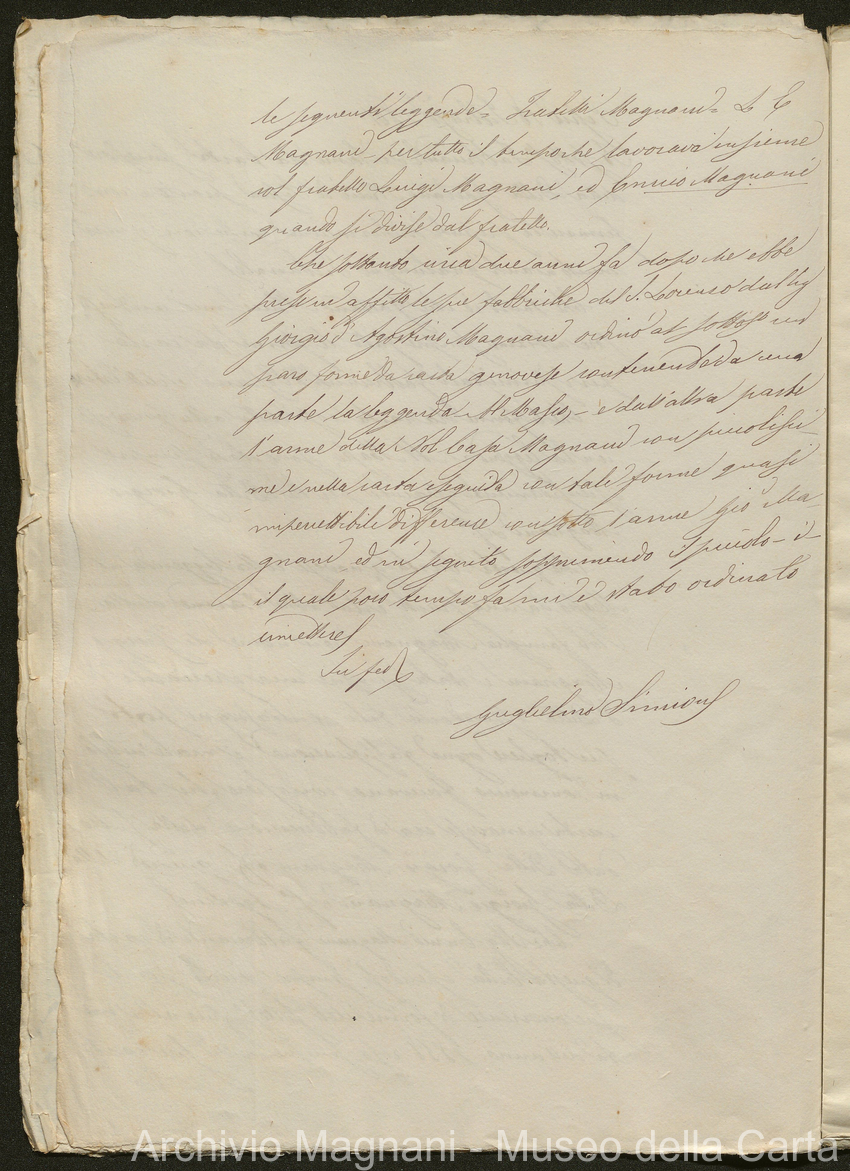 le seguenti leggende = Fratelli Magnani = L E
Magnani - per tutto il tempo che lavorava insieme
col fratello Luigi Magnani, ed Enrico Magnani
quando si divise dal fratello.
Che soltanto circa due anni fa dopo che ebbe
preso in affitto le due fabbriche del S. Lorenzo dal Sig
Giorgio d'Agostino Magnani ordinò al sottos.º un
paro forme da carta genovese contenende da una
parte la leggenda Al Masso, - e dall'altra parte
l'arme della Nob Casa Magnani con piccolissi-
me e nella carta eseguita con tali forme quasi
impercettibile differenze con sotto l'arme Gio Ma-
gnani ed in seguito sopprimendo I piccolo - i -
il quale poco tempo fa mi è stato ordinato
rimettere
In fede
Guglielmo Simioni
Archivio Magnani - Museo della Carta